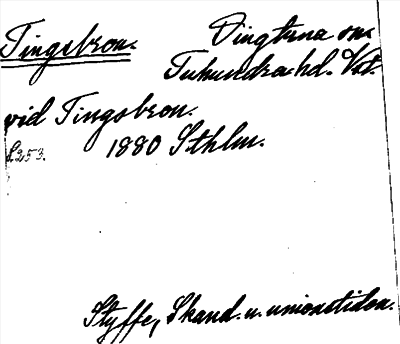 Tingsbron.
Vingtuna sn.
Tuhundra hd. Vst.
vid Tingsbron.
s. 253.
1880 Sthlm.
Styffe, Skand. u. unionstiden.